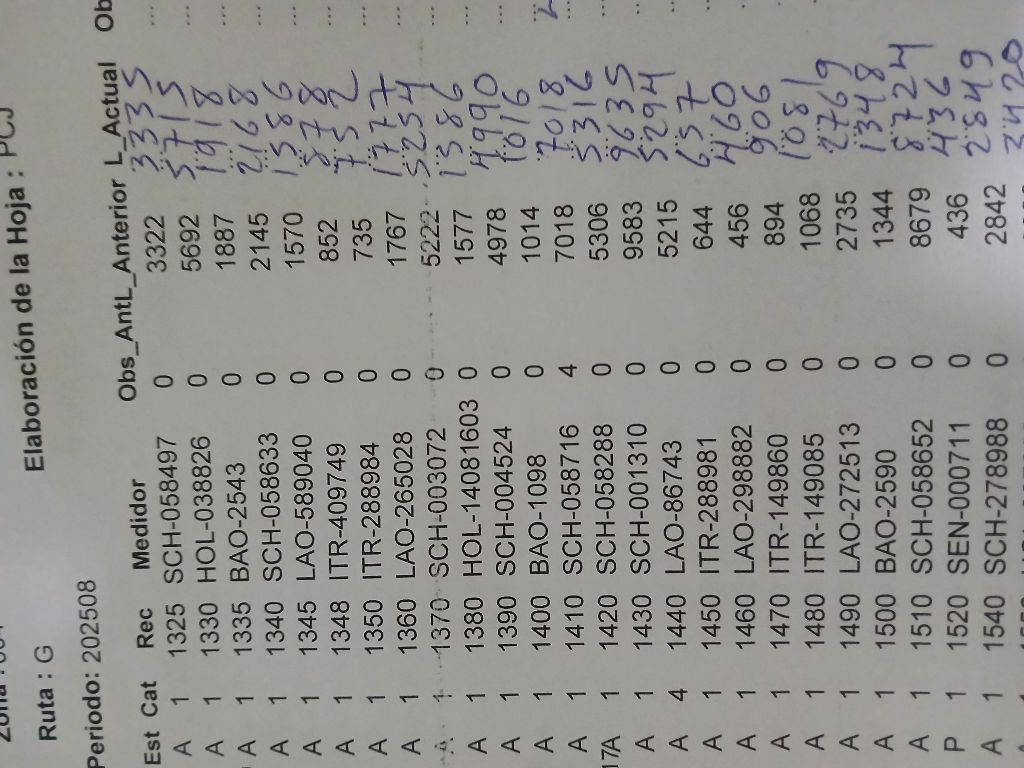 Elaboración de la Hoja : PCJ
Ruta : G
Periodo: 202508
Est Cat Rec Medidor Obs_AntL_Anterior L_Actual Ob
A 1 1325 SCH-058497 0 3322 3335
A 1 1330 HOL-038826 0 5692 5715
A 1 1335 BAO-2543 0 1887 1918
A 1 1340 SCH-058633 0 2145 2168
A 1 1345 LAO-589040 0 1570 1586
A 1 1348 ITR-409749 0 852 878
A 1 1350 ITR-288984 0 735 752
A 1 1360 LAO-265028 0 1767 1777
A 1 1370 SCH-003072 0 5222 5254
A 1 1380 HOL-14081603 0 1577 1586
A 1 1390 SCH-004524 0 4978 4990
A 1 1400 BAO-1098 0 1014 1016
A 1 1410 SCH-058716 4 7018 7018
17A 1 1420 SCH-058288 0 5306 5316
A 1 1430 SCH-001310 0 9583 9635
A 4 1440 LAO-86743 0 5215 5294
A 1 1450 ITR-288981 0 644 657
A 1 1460 LAO-298882 0 456 460
A 1 1470 ITR-149860 0 894 906
A 1 1480 ITR-149085 0 1068 1081
A 1 1490 LAO-272513 0 2735 2769
A 1 1500 BAO-2590 0 1344 1348
A 1 1510 SCH-058652 0 8679 8724
P 1 1520 SEN-000711 0 436 436
A 1 1540 SCH-278988 0 2842 2849
3420